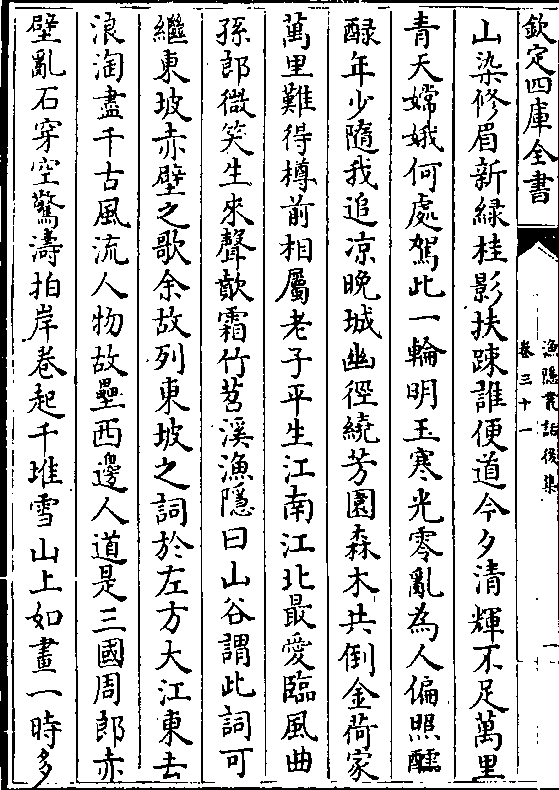 欽定四庫全書
漁隱叢話後集
卷三十一
一
山染修眉新綠桂影扶疎誰便道今夕清輝不足萬里
青天嫦娥何處駕此一輪明玉寒光零亂為人偏照醽
醁年少隨我追凉晚城幽徑繞芳園森木共倒金荷家
萬里難得樽前相屬老子平生江南江北最愛臨風曲
孫郎微笑坐來聲歕霜竹苕溪漁隱曰山谷謂此詞可
繼東坡赤壁之歌余故列東坡之詞於左方大江東去
浪淘盡千古風流人物故壘西邊人道是三國周郎赤
壁亂石穿空驚濤拍岸卷起千堆雪山上如畫一時多